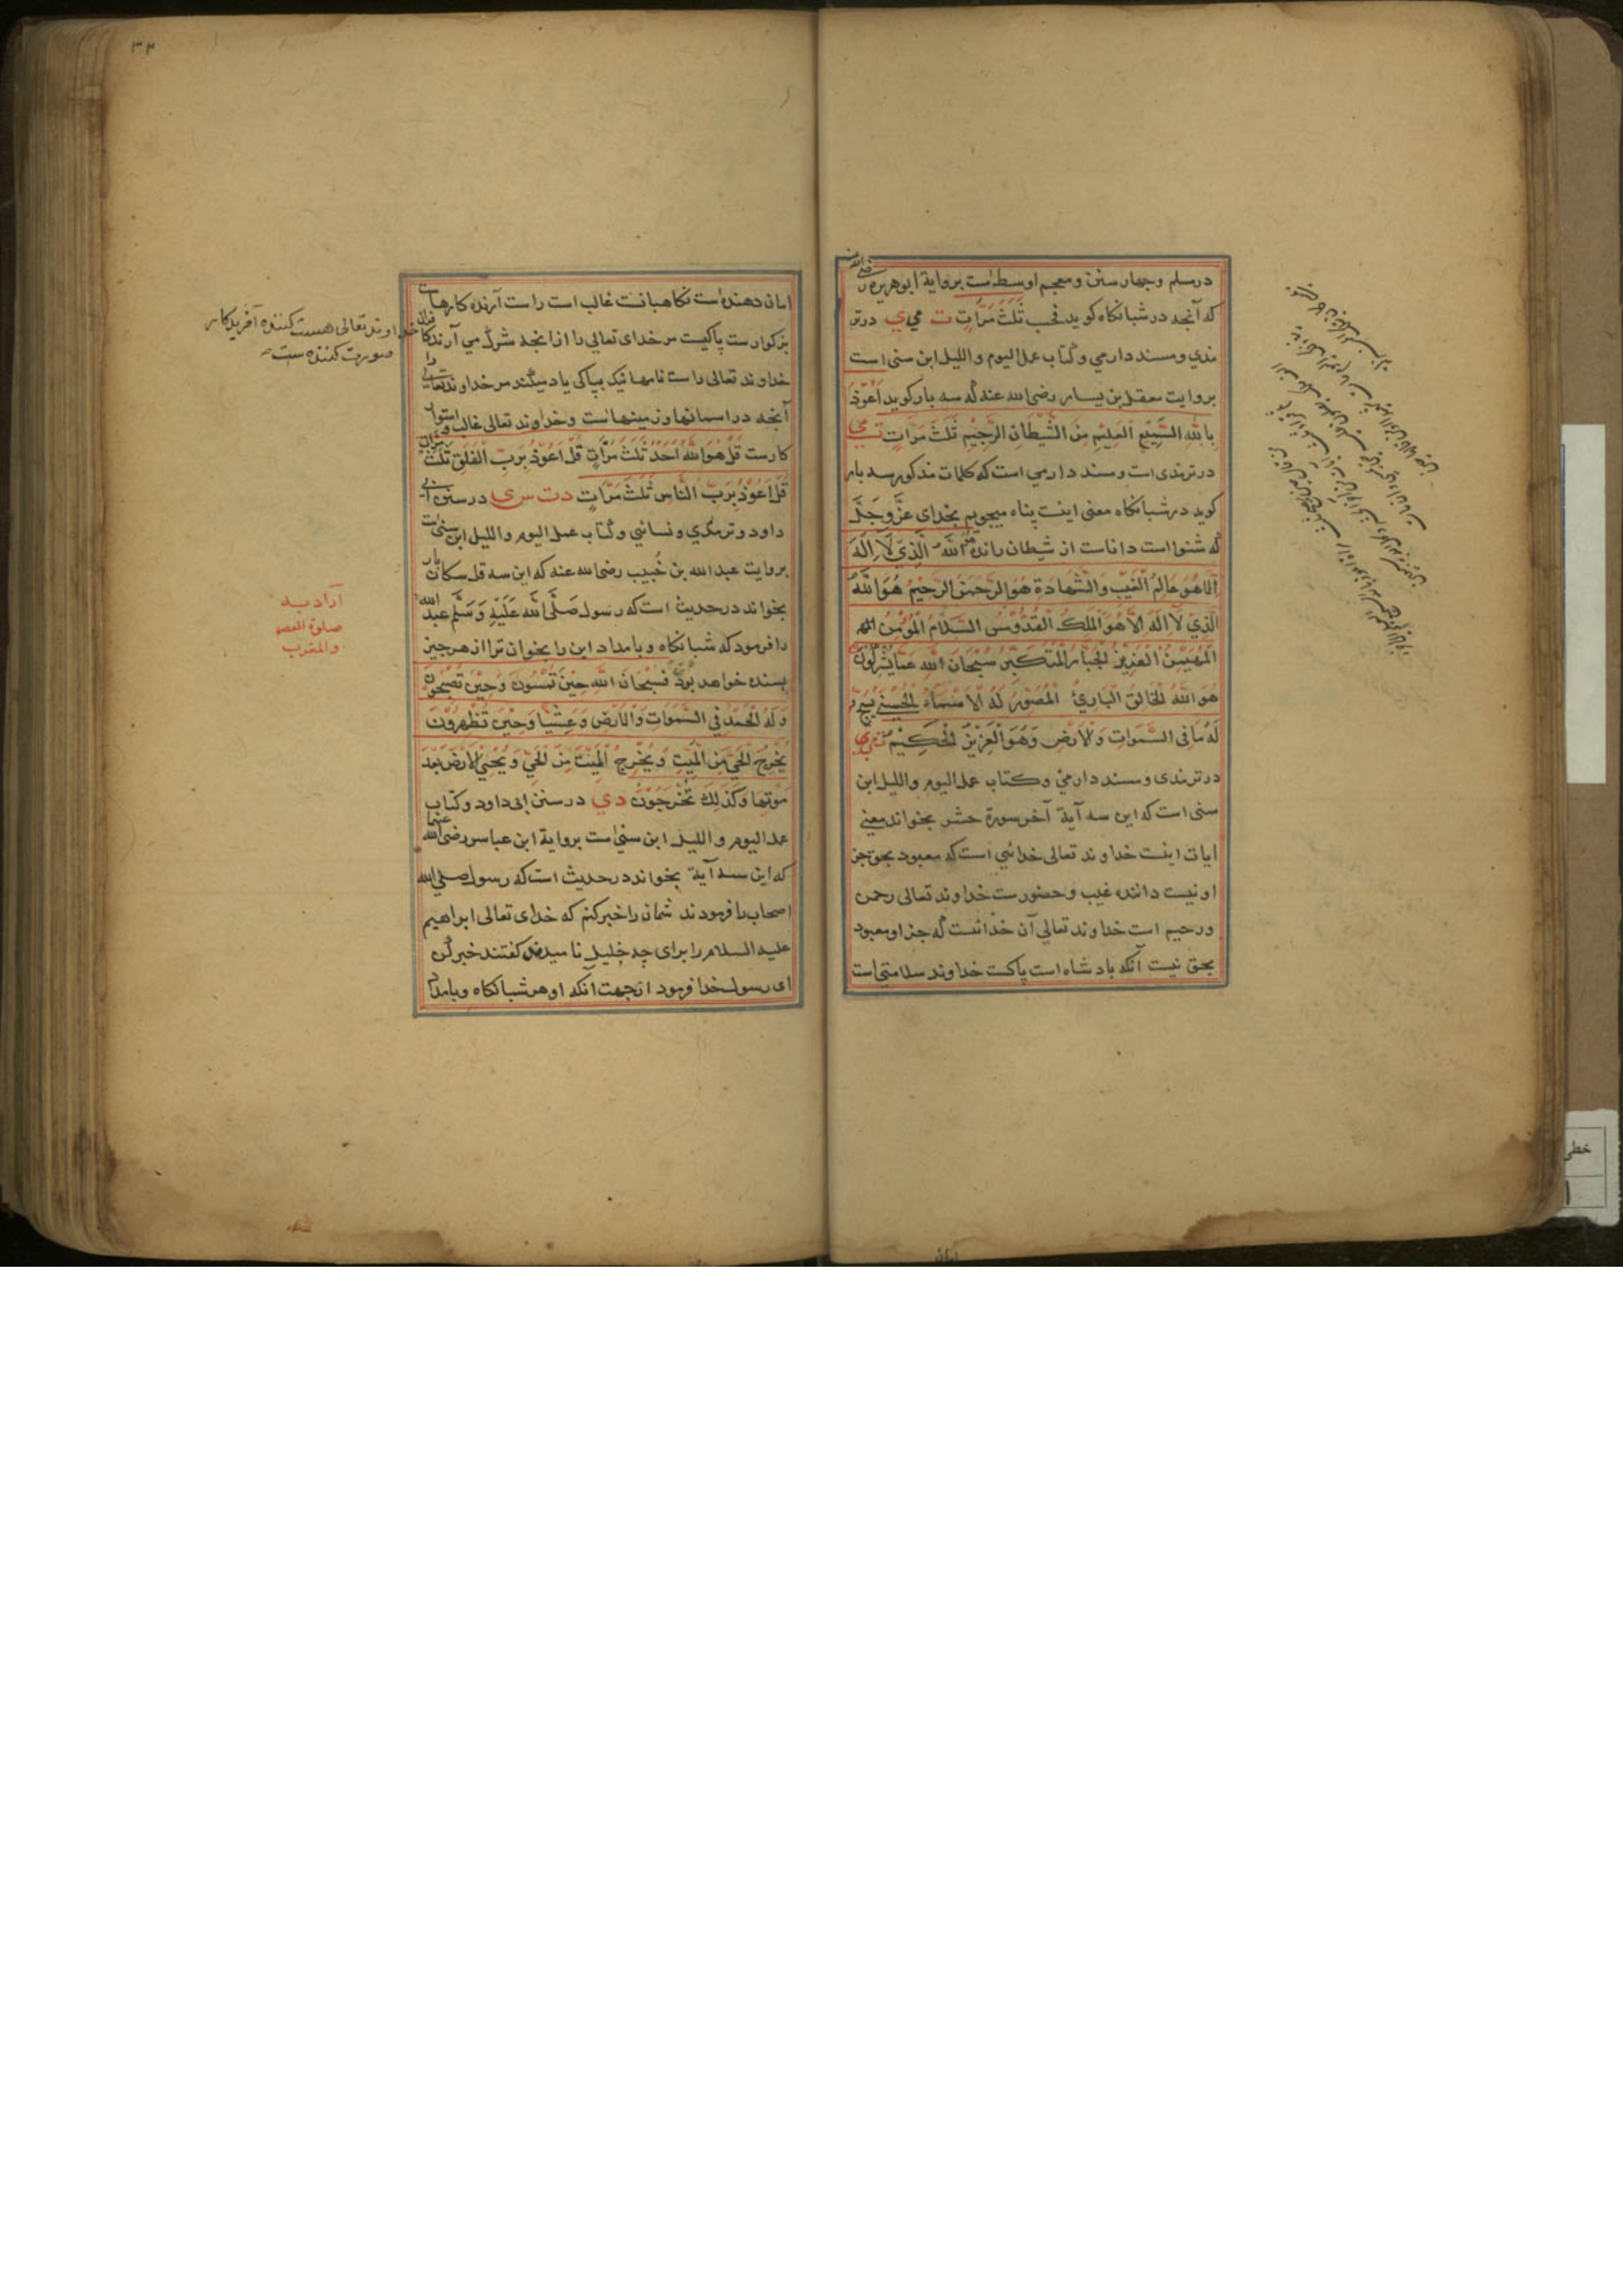 درمسلم وچهار سنن ومعجم اوسط است برواية ابوهريره رضی الله عنه
که آنچه در شبانکاه کوید فحسب ثَلٰثَ مَرَّاتٍ ت مي ي درتر
مذي ومسند دارمي وکتاب عمل الیوم واللیل ابن سنی است
بروایت معقل بن یسار رضی الله عنه که سه بار کوید اَعُوْذُ
بِاللّٰهِ السَّمِيْعِ الْعَلِيْمِ مِنَ الشَّيْطَانِ الرَّجِيْمِ ثَلٰثَ مَرَّاتٍ ت مي
درترمذی است ومسند دارمی است که کلمات مذکور سه بار
کوید در شبانکاه معنی اینست پناه میجویم بخدای عَزَّ وَجَلَّ
که شنوا است داناست از شیطان رانده هُوَ اللّٰهُ الَّذِيْ لَا اِلٰهَ
اِلَّا هُوَ عَالِمُ الْغَيْبِ وَالشَّهَادَةِ هُوَ الرَّحْمٰنُ الرَّحِيْمُ هُوَ اللّٰهُ
الَّذِيْ لَا اِلٰهَ اِلَّا هُوَ اَلْمَلِكُ الْقُدُّوْسُ السَّلَامُ الْمُؤْمِنُ
الْمُهَيْمِنُ الْعَزِيْزُ الْجَبَّارُ الْمُتَكَبِّرُ سُبْحَانَ اللّٰهِ عَمَّا يُشْرِكُوْنَ
هُوَ اللّٰهُ الْخَالِقُ الْبَارِئُ الْمُصَوِّرُ لَهُ الْاَسْمَاءُ الْحُسْنٰى يُسَبِّحُ
لَهُ مَا فِى السَّمٰوَاتِ وَالْاَرْضِ وَهُوَ الْعَزِيْزُ الْحَكِيْمُ ت مي ي
درترمذی ومسند دارمي وکتاب عمل الیوم واللیل ابن
سنی است که این سه آیة آخر سورة حشر بخواند معنی
ایات اینست خداوند تعالی خدائی است که معبود بحق جز
او نیست داننده غیب وحضورست خداوند تعالی رحمن
ورحیم است خداوند تعالی آن خدائست که جز او معبود
بحق نیست آنکه بادشاه است پاکست خداوند سلامتی است
امان
۳۲
امان دهنده است نکاهبانست غالب است راست آرنده کارهاست
بزکوارست پاکیست مر خدای تعالی را ازانچه شرک می آرند کافران
خداوند تعالی هست کننده آفریدکار
صورت کننده ست
خداوند تعالی راست نامها نیک بپاکی یاد میکند مر خداوند تعالی را
آنچه در اسمانها وزمینهاست وخداوند تعالی غالب واستوار
کارست قُلْ هُوَ اللّٰهُ اَحَدٌ ثَلٰثَ مَرَّاتٍ قُلْ اَعُوْذُ بِرَبِّ الْفَلَقِ ثَلٰثَ مَرَّاتٍ
قُلْ اَعُوْذُ بِرَبِّ النَّاسِ ثَلٰثَ مَرَّاتٍ د ت س ی در سنن ابی
داود وترمذي ونسائي وکتاب عمل الیوم واللیل ابن سنی است
بروایت عبد الله بن خُبیب رضی الله عنه که این سه قل سکان بار
بخواند درحدیث است که رسول صَلَّى اللّٰهُ عَلَيْهِ وَسَلَّم عبد الله
را فرمود که شبانکاه وبامداد این را بخوان ترا از هر چیز
بسنده خواهد بود فَسُبْحَانَ اللّٰهِ حِيْنَ تُمْسُوْنَ وَحِيْنَ تُصْبِحُوْنَ
وَلَهُ الْحَمْدُ فِى السَّمٰوَاتِ وَالْاَرْضِ وَعَشِيًّا وَحِيْنَ تُظْهِرُوْنَ
يُخْرِجُ الْحَيَّ مِنَ الْمَيِّتِ وَيُخْرِجُ الْمَيِّتَ مِنَ الْحَيِّ وَيُحْيِ الْاَرْضَ بَعْدَ
مَوْتِهَا وَكَذٰلِكَ تُخْرَجُوْنَ د ي در سنن ابی داود وکتاب
عمل الیوم واللیل ابن سنی است برواية ابن عباس رضی الله عنهما
که این سه آیة بخواند درحدیث است که رسول صلی الله
اصحاب را فرمودند شمان را خبر کنم که خدای تعالی ابراهیم
علیه السلام را برای چه خلیل نامید کفتند خبر کن
ای رسول خدا فرمود ازجهت آنکه او هر شبانکاه وبامداد
اراد به
صلوة العصر
والمغرب
خطی